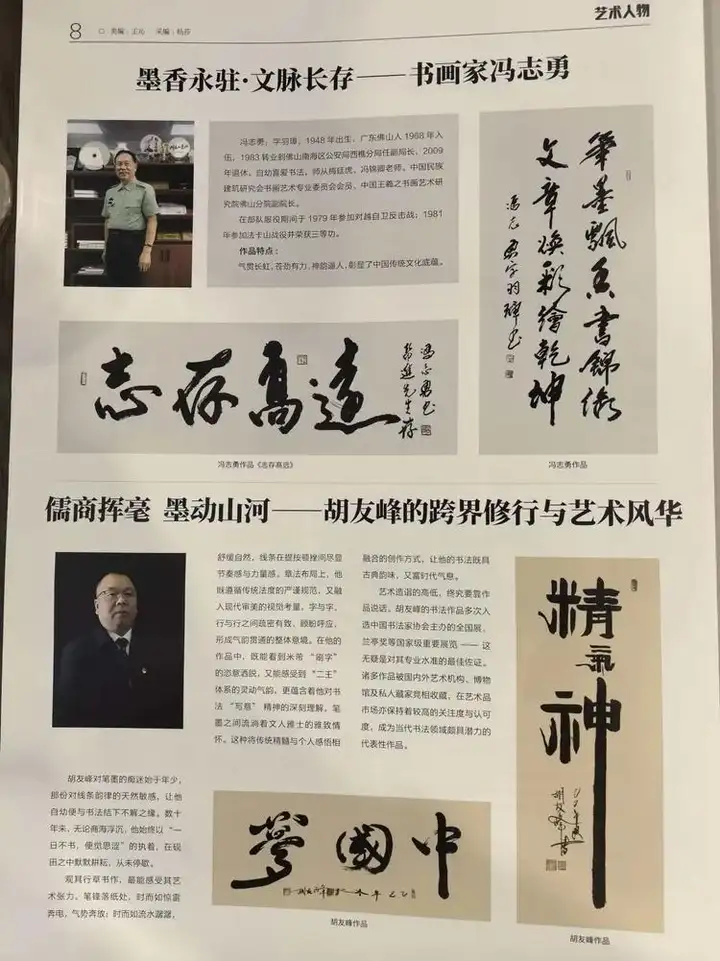 8
美编：王沁 采编：杨莎
艺术人物
墨香永驻·文脉长存——书画家冯志勇
冯志勇，字羽璋，1948年出生，广东佛山人1968年入
伍，1983转业到佛山南海区公安局西樵分局任副局长，2009
年退休。自幼喜爱书法，师从梅廷虎、冯锦卿老师。中国民族
建筑研究会书画艺术专业委员会会员、中国王羲之书画艺术研
究院佛山分院副院长。
在部队服役期间于1979年参加对越自卫反击战；1981
年参加法卡山战役并荣获三等功。
作品特点：
气贯长虹，苍劲有力，神韵逼人，彰显了中国传统文化底蕴。
笔墨飘香书锦绣
文章焕彩绘乾坤
冯志勇字羽璋书
志存高远
冯志勇书
冯志勇作品《志存高远》
冯志勇作品
儒商挥毫 墨动山河——胡友峰的跨界修行与艺术风华
胡友峰对笔墨的痴迷始于年少，
那份对线条韵律的天然敏感，让他
自幼便与书法结下不解之缘。数十
年来，无论商海浮沉，他始终以“一
日不书，便觉思涩”的执着，在砚
田之中默默耕耘，从未停歇。
观其行草书作，最能感受其艺
术张力。笔锋落纸处，时而如惊雷
奔电，气势奔放；时而如流水潺潺，
舒缓自然，线条在提按顿挫间尽显
节奏感与力量感。章法布局上，他
既遵循传统法度的严谨规范，又融
入现代审美的视觉考量，字与字、
行与行之间疏密有致、顾盼呼应，
形成气韵贯通的整体意境。在他的
作品中，既能看到米芾“刷字”
的恣意洒脱，又能感受到“二王”
体系的灵动气韵，更蕴含着他对书
法“写意”精神的深刻理解，笔
墨之间流淌着文人雅士的雅致情
怀。这种将传统精髓与个人感悟相
融合的创作方式，让他的书法既具
古典韵味，又富时代气息。
艺术造诣的高低，终究要靠作
品说话。胡友峰的书法作品多次入
选中国书法家协会主办的全国展、
兰亭奖等国家级重要展览 —— 这
无疑是对其专业水准的最佳佐证。
诸多作品被国内外艺术机构、博物
馆及私人藏家竞相收藏，在艺术品
市场亦保持着较高的关注度与认可
度，成为当代书法领域颇具潜力的
代表性作品。
精氣神
中國夢
胡友峰作品
胡友峰作品